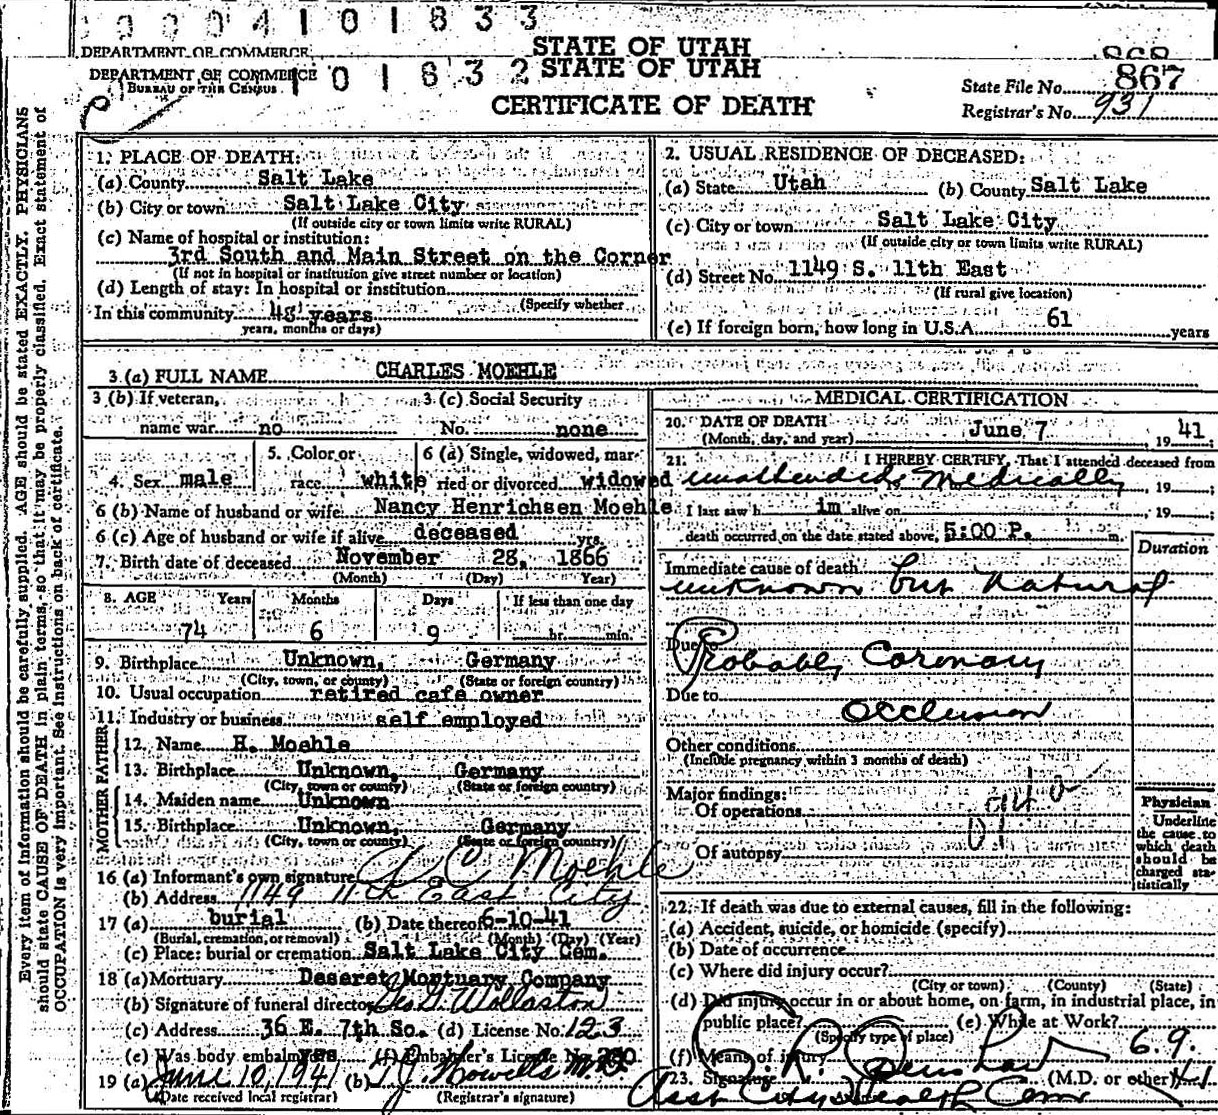 0004101833
DEPARTMENT OF COMMERCE
STATE OF UTAH
868
DEPARTMENT OF COMMERCE
BUREAU OF THE CENSUS
101832
STATE OF UTAH
CERTIFICATE OF DEATH
State File No. 867
Registrar's No. 931
Every item of information should be carefully supplied. AGE should be stated EXACTLY. PHYSICIANS
should state CAUSE OF DEATH in plain terms, so that it may be properly classified. Exact statement of
OCCUPATION is very important. See instructions on back of certificate.
1. PLACE OF DEATH:
(a) County Salt Lake
(b) City or town Salt Lake City
(If outside city or town limits write RURAL)
(c) Name of hospital or institution:
3rd South and Main Street on the Corner
(If not in hospital or institution give street number or location)
(d) Length of stay: In hospital or institution
(Specify whether
In this community 48 years
years, months or days)
2. USUAL RESIDENCE OF DECEASED:
(a) State Utah (b) County Salt Lake
(c) City or town Salt Lake City
(If outside city or town limits write RURAL)
(d) Street No. 1149 S. 11th East
(If rural give location)
(e) If foreign born, how long in U.S.A. 61 years
3 (a) FULL NAME CHARLES MOEHLE
3 (b) If veteran,
name war no
3 (c) Social Security
No. none
4. Sex male
5. Color or
race white
6 (a) Single, widowed, mar-
ried or divorced widowed
6 (b) Name of husband or wife Nancy Henrichsen Moehle
6 (c) Age of husband or wife if alive deceased yrs.
7. Birth date of deceased November 28, 1866
(Month) (Day) Year)
8. AGE Years Months Days If less than one day
74 6 9 hr. min.
9. Birthplace Unknown, Germany
(City, town, or county) (State or foreign country)
10. Usual occupation retired cafe owner
11. Industry or business self employed
FATHER
12. Name H. Moehle
13. Birthplace Unknown, Germany
(City, town or county) (State or foreign country)
MOTHER
14. Maiden name Unknown
15. Birthplace Unknown, Germany
(City, town or county) (State or foreign country)
16 (a) Informant's own signature C Moehle
(b) Address 1149 11th East City
17 (a) burial (b) Date thereof 6-10-41
(Burial, cremation, or removal) (Month) (Day) (Year)
(c) Place: burial or cremation Salt Lake City Cem.
18 (a) Mortuary Deseret Mortuary Company
(b) Signature of funeral director Geo. G. Wollaston
(c) Address 36 E. 7th So. (d) License No. 123
(e) Was body embalmed yes (f) Embalmer's License No.
19 (a) June 10, 1941 (b) T J Howells M.D.
(Date received local registrar) (Registrar's signature)
MEDICAL CERTIFICATION
20. DATE OF DEATH
(Month, day, and year) June 7, 1941
21. I HEREBY CERTIFY, That I attended deceased from
unattended Medically, 19 ;
I last saw h im alive on , 19 ;
death occurred on the date stated above, 5:00 P. m.
Duration
Immediate cause of death
unknown but natural
Due to
Probably Coronary
Due to
Occlusion
Other conditions
(Include pregnancy within 3 months of death)
Major findings:
Of operations
Of autopsy
Physician
Underline
the cause to
which death
should be
charged sta-
tistically
22. If death was due to external causes, fill in the following:
(a) Accident, suicide, or homicide (specify)
(b) Date of occurrence
(c) Where did injury occur?
(City or town) (County) (State)
(d) Did injury occur in or about home, on farm, in industrial place, in
public place? (e) While at Work?
(Specify type of place)
(f) Means of injury
6.9.
23. Signature (M.D. or other) 41
Asst City Health Com